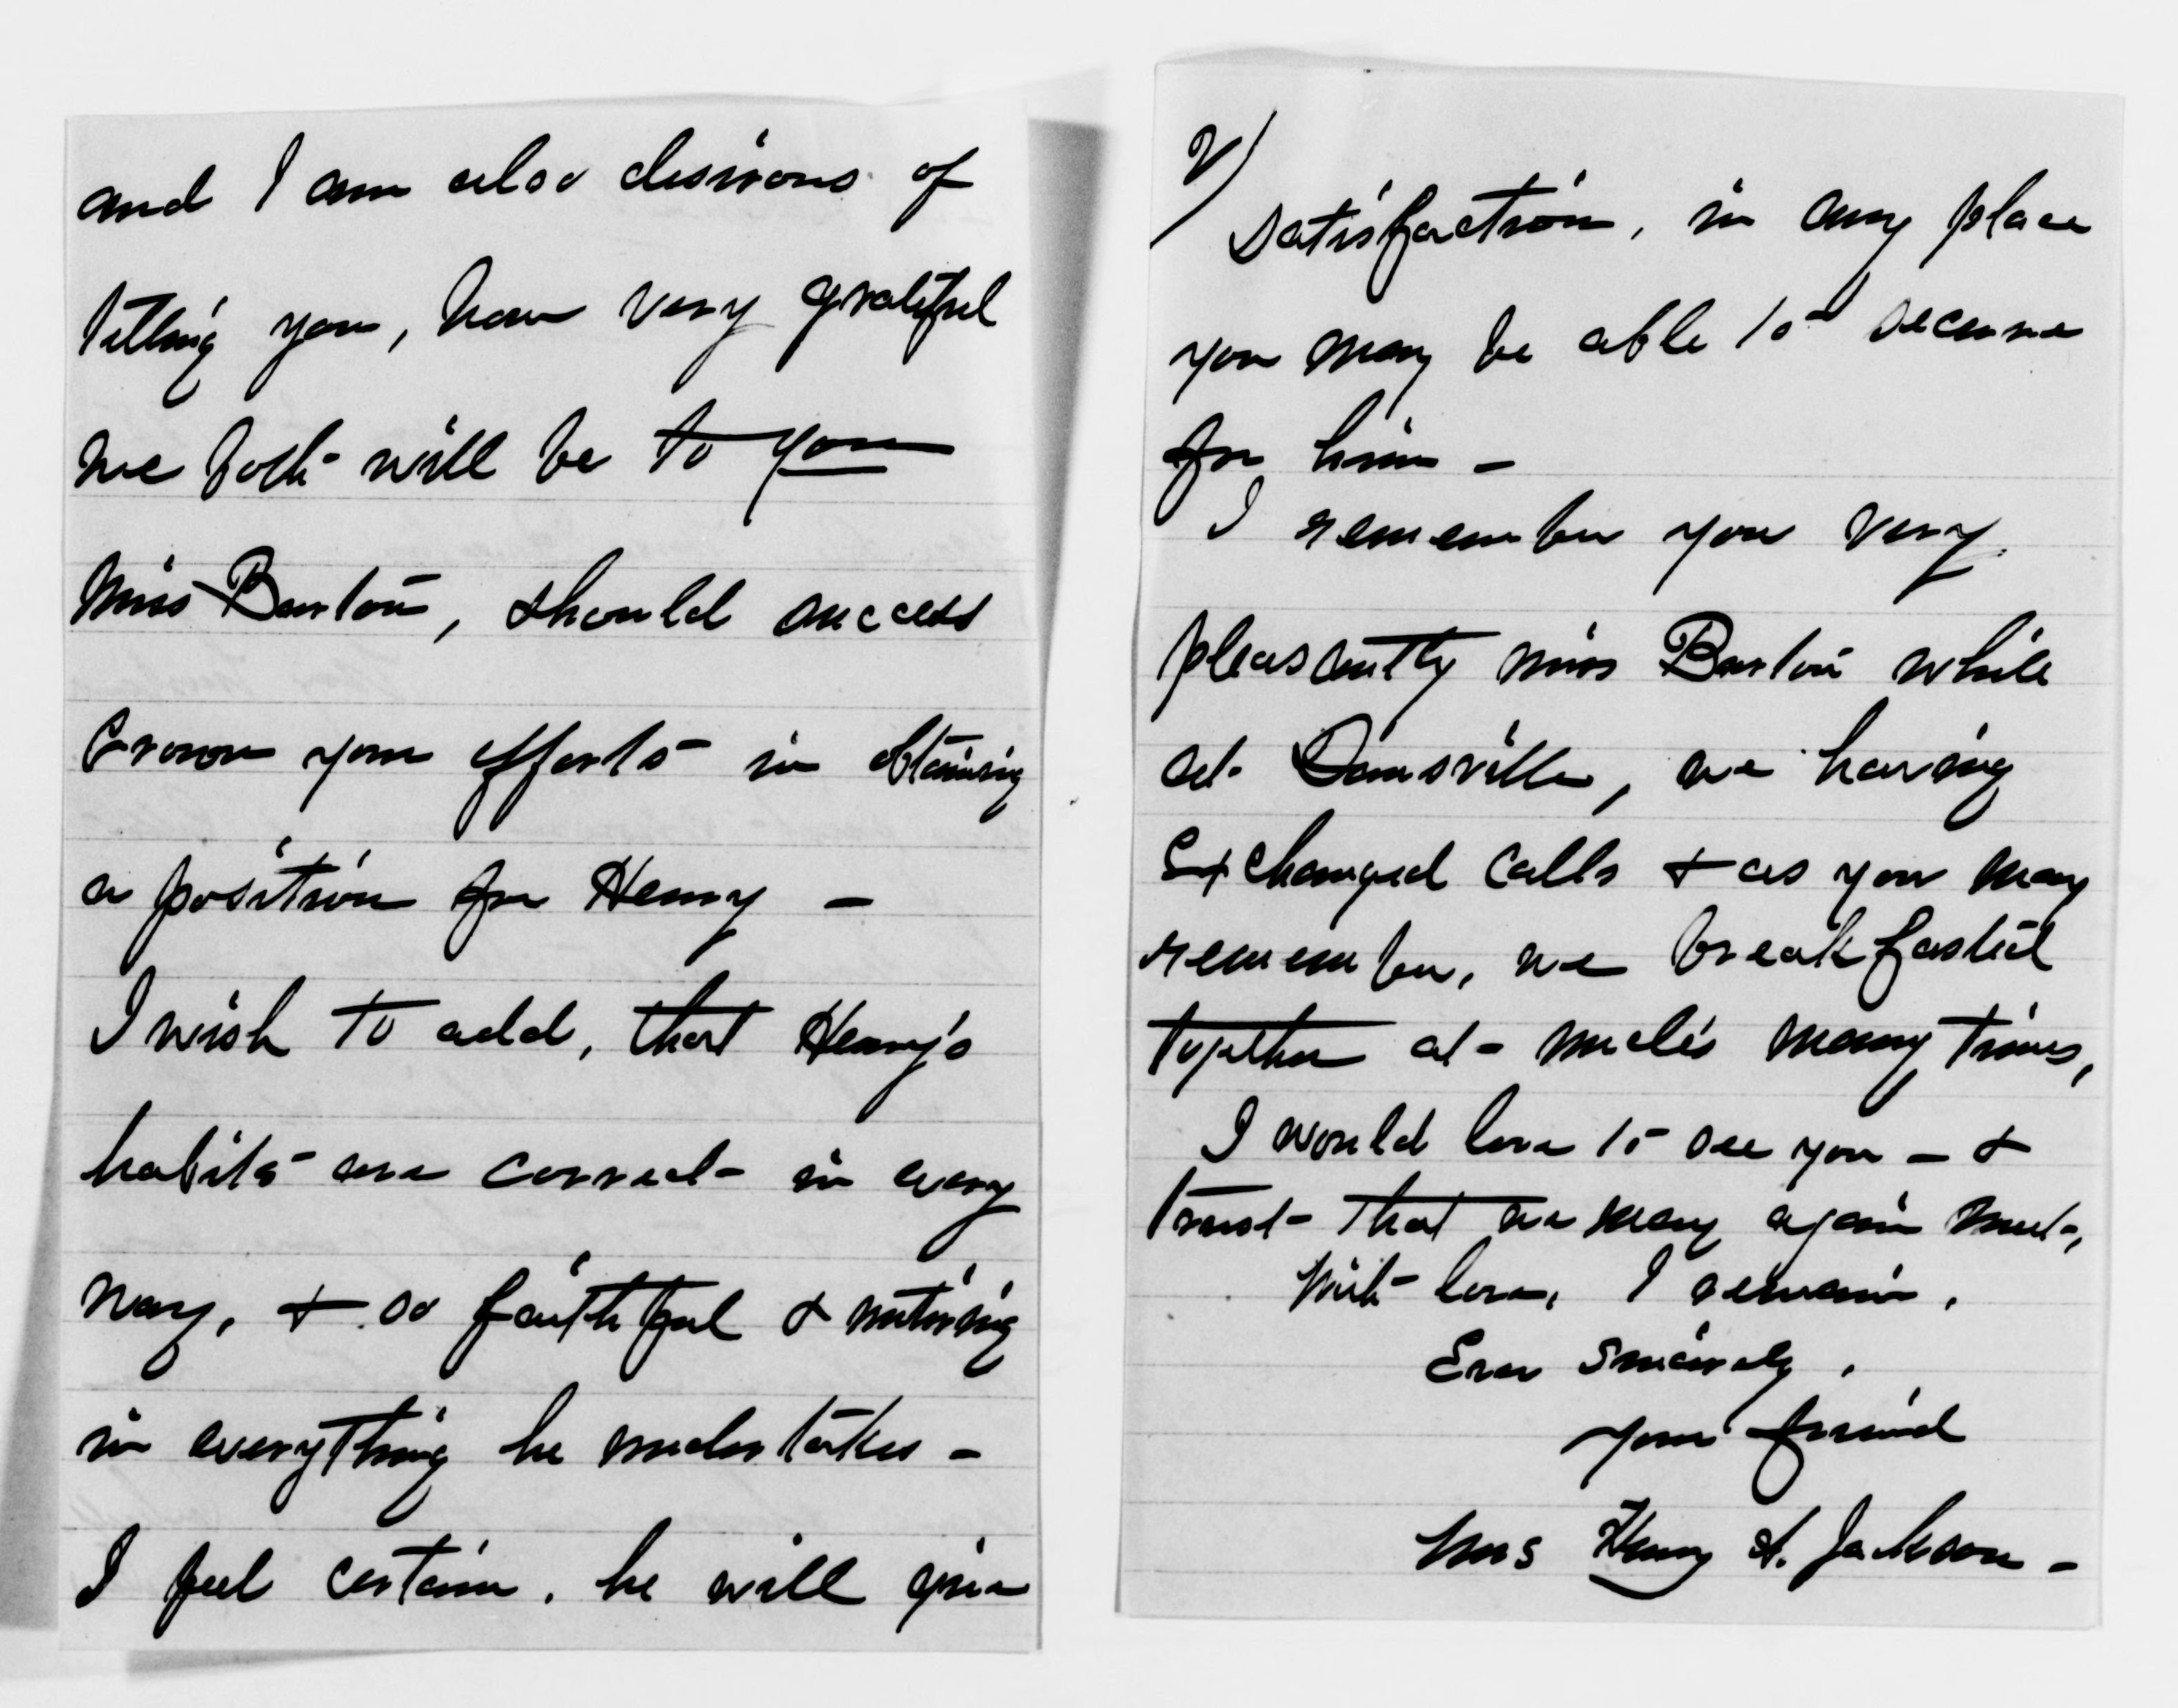 and I am also desirous of
telling you, how very grateful
we both will be to you
Miss Barton, should success
crown your efforts in obtaining
a position for Henry -
I wish to add, that Henry's
habits are correct in every
way, & so faithful & untiring
in everything he undertakes -
I feel certain, he will give
2/
satisfaction, in any place
you may be able to secure
for him -
I remember you very
pleasantly Miss Barton while
at Dansville, we having
Exchanged calls & as you may
remember, we breakfasted
together at many times,
I would love to see you - &
trust that we may again meet,
With love, I remain,
Ever Sincerely,
your friend
Mrs Henry A. Jackson -